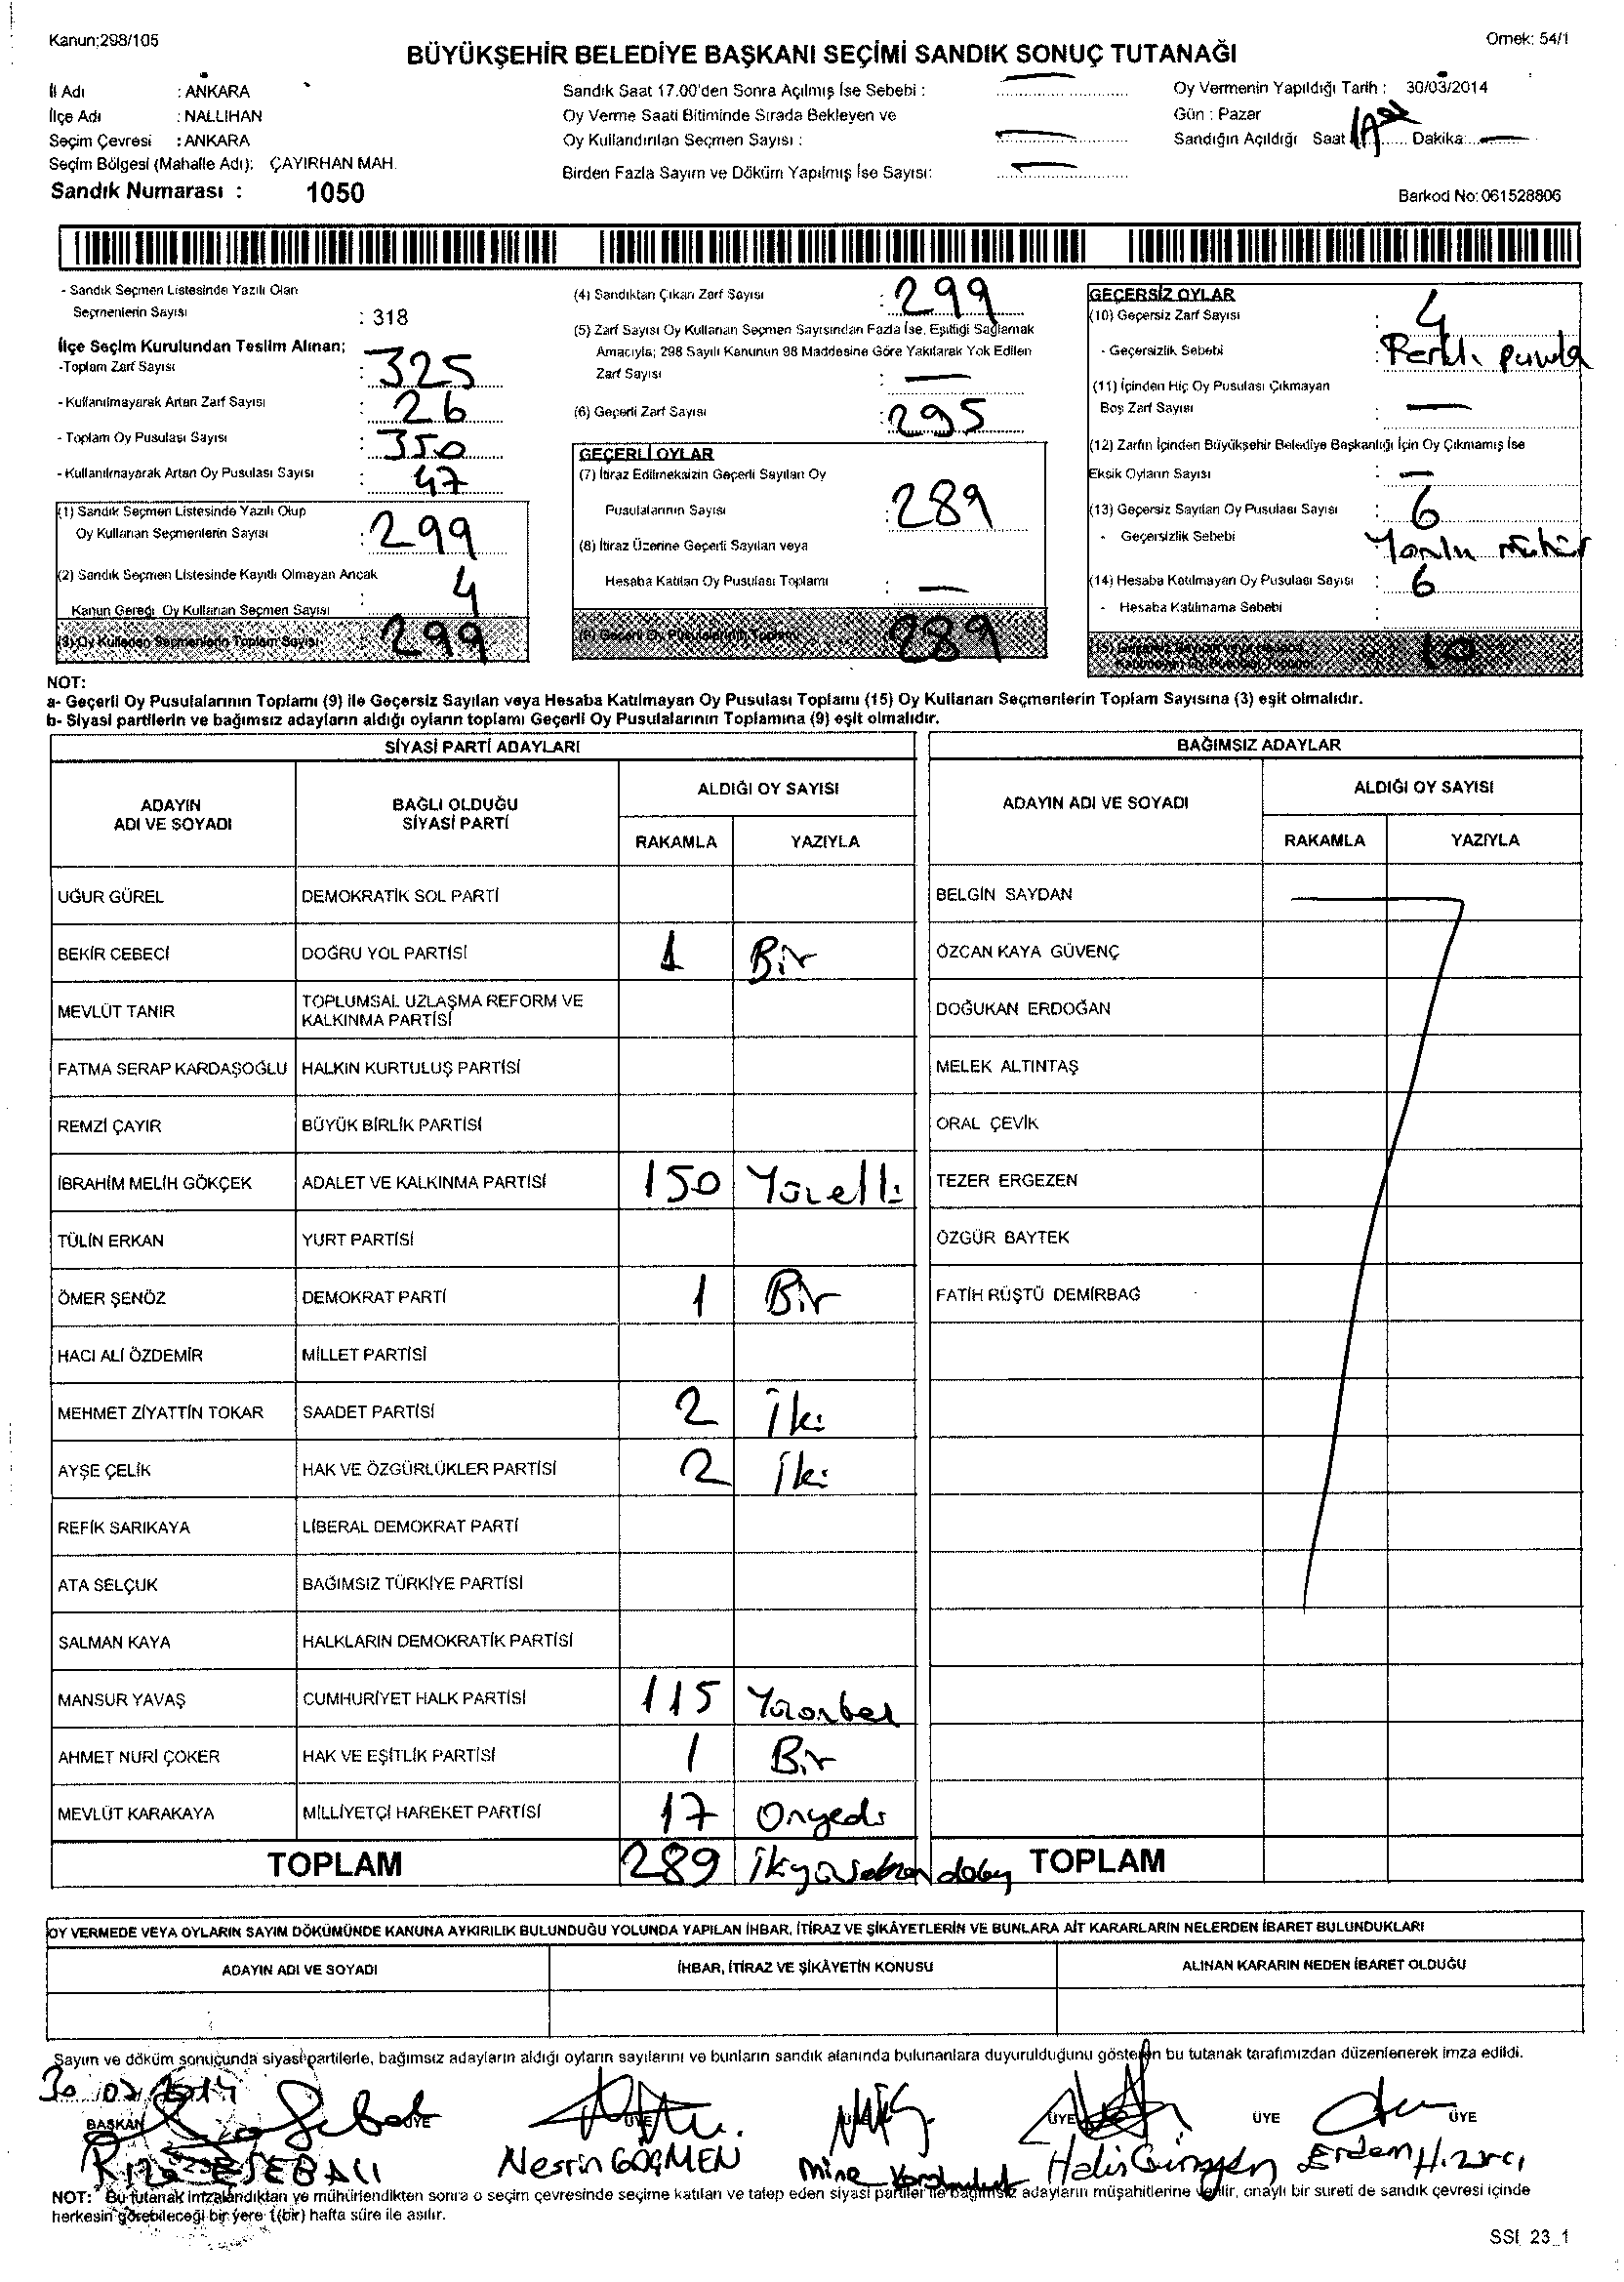 Kanun:298/105
Örnek: 54/1
BÜYÜKŞEHİR BELEDİYE BAŞKANI SEÇİMİ SANDIK SONUÇ TUTANAĞI
İl Adı : ANKARA
İlçe Adı : NALLIHAN
Seçim Çevresi : ANKARA
Seçim Bölgesi (Mahalle Adı): ÇAYIRHAN MAH.
Sandık Numarası : 1050
Sandık Saat 17.00'den Sonra Açılmış İse Sebebi :
Oy Verme Saati Bitiminde Sırada Bekleyen ve
Oy Kullandırılan Seçmen Sayısı :
Birden Fazla Sayım ve Döküm Yapılmış İse Sayısı:
Oy Vermenin Yapıldığı Tarih : 30/03/2014
Gün : Pazar
Sandığın Açıldığı Saat Dakika:
Barkod No: 061528806
- Sandık Seçmen Listesinde Yazılı Olan
Seçmenlerin Sayısı : 318
İlçe Seçim Kurulundan Teslim Alınan;
-Toplam Zarf Sayısı : 325
- Kullanılmayarak Artan Zarf Sayısı : 26
- Toplam Oy Pusulası Sayısı : 350
- Kullanılmayarak Artan Oy Pusulası Sayısı : 47
(1) Sandık Seçmen Listesinde Yazılı Olup
Oy Kullanan Seçmenlerin Sayısı : 299
(2) Sandık Seçmen Listesinde Kayıtlı Olmayan Ancak
Kanun Gereği Oy Kullanan Seçmen Sayısı : 4
(3) Oy Kullanan Seçmenlerin Toplam Sayısı : 299
(4) Sandıktan Çıkan Zarf Sayısı : 299
(5) Zarf Sayısı Oy Kullanan Seçmen Sayısından Fazla İse, Eşitliği Sağlamak
Amacıyla; 298 Sayılı Kanunun 98 Maddesine Göre Yakılarak Yok Edilen
Zarf Sayısı : —
(6) Geçerli Zarf Sayısı : 295
GEÇERLİ OYLAR
(7) İtiraz Edilmeksizin Geçerli Sayılan Oy
Pusulalarının Sayısı : 289
(8) İtiraz Üzerine Geçerli Sayılan veya
Hesaba Katılan Oy Pusulası Toplamı : —
(9) Geçerli Oy Pusulalarının Toplamı 289
GEÇERSİZ OYLAR
(10) Geçersiz Zarf Sayısı : 4
- Geçersizlik Sebebi :
(11) İçinden Hiç Oy Pusulası Çıkmayan
Boş Zarf Sayısı : —
(12) Zarfın İçinden Büyükşehir Belediye Başkanlığı İçin Oy Çıkmamış İse
Eksik Oyların Sayısı : —
(13) Geçersiz Sayılan Oy Pusulası Sayısı : 6
- Geçersizlik Sebebi :
(14) Hesaba Katılmayan Oy Pusulası Sayısı : 6
- Hesaba Katılmama Sebebi :
10
NOT:
a- Geçerli Oy Pusulalarının Toplamı (9) ile Geçersiz Sayılan veya Hesaba Katılmayan Oy Pusulası Toplamı (15) Oy Kullanan Seçmenlerin Toplam Sayısına (3) eşit olmalıdır.
b- Siyasi partilerin ve bağımsız adayların aldığı oyların toplamı Geçerli Oy Pusulalarının Toplamına (9) eşit olmalıdır.
SİYASİ PARTİ ADAYLARI
ADAYIN ADI VE SOYADI
BAĞLI OLDUĞU SİYASİ PARTİ
ALDIĞI OY SAYISI
RAKAMLA YAZIYLA
UĞUR GÜREL DEMOKRATİK SOL PARTİ
BEKİR CEBECİ DOĞRU YOL PARTİSİ 1 Bir
MEVLÜT TANIR TOPLUMSAL UZLAŞMA REFORM VE
KALKINMA PARTİSİ
FATMA SERAP KARDAŞOĞLU HALKIN KURTULUŞ PARTİSİ
REMZİ ÇAYIR BÜYÜK BİRLİK PARTİSİ
İBRAHİM MELİH GÖKÇEK ADALET VE KALKINMA PARTİSİ 150 Yüzelli
TÜLİN ERKAN YURT PARTİSİ
ÖMER ŞENÖZ DEMOKRAT PARTİ 1 Bir
HACI ALİ ÖZDEMİR MİLLET PARTİSİ
MEHMET ZİYATTİN TOKAR SAADET PARTİSİ 2 İki
AYŞE ÇELİK HAK VE ÖZGÜRLÜKLER PARTİSİ 2 İki
REFİK SARIKAYA LİBERAL DEMOKRAT PARTİ
ATA SELÇUK BAĞIMSIZ TÜRKİYE PARTİSİ
SALMAN KAYA HALKLARIN DEMOKRATİK PARTİSİ
MANSUR YAVAŞ CUMHURİYET HALK PARTİSİ 115 Yüzonbeş
AHMET NURİ ÇOKER HAK VE EŞİTLİK PARTİSİ 1 Bir
MEVLÜT KARAKAYA MİLLİYETÇİ HAREKET PARTİSİ 17 Onyedi
TOPLAM 289
BAĞIMSIZ ADAYLAR
ADAYIN ADI VE SOYADI
ALDIĞI OY SAYISI
RAKAMLA YAZIYLA
BELGİN SAYDAN
ÖZCAN KAYA GÜVENÇ
DOĞUKAN ERDOĞAN
MELEK ALTINTAŞ
ORAL ÇEVİK
TEZER ERGEZEN
ÖZGÜR BAYTEK
FATİH RÜŞTÜ DEMİRBAĞ
TOPLAM
OY VERMEDE VEYA OYLARIN SAYIM DÖKÜMÜNDE KANUNA AYKIRILIK BULUNDUĞU YOLUNDA YAPILAN İHBAR, İTİRAZ VE ŞİKÂYETLERİN VE BUNLARA AİT KARARLARIN NELERDEN İBARET BULUNDUKLARI
ADAYIN ADI VE SOYADI
İHBAR, İTİRAZ VE ŞİKÂYETİN KONUSU
ALINAN KARARIN NEDEN İBARET OLDUĞU
Sayım ve döküm sonucunda siyasi partilerle, bağımsız adayların aldığı oyların sayılarını ve bunların sandık alanında bulunanlara duyurulduğunu gösteren bu tutanak tarafımızdan düzenlenerek imza edildi.
BAŞKAN ÜYE ÜYE ÜYE ÜYE ÜYE ÜYE
Nesrin GÖÇMEN
Mine
NOT: Bu tutanak imzalandıktan ve mühürlendikten sonra o seçim çevresinde seçime katılan ve talep eden siyasi partiler ile bağımsız adayların müşahitlerine verilir, onaylı bir sureti de sandık çevresi içinde
herkesin görebileceği bir yere 1(bir) hafta süre ile asılır.
SSI_23_1